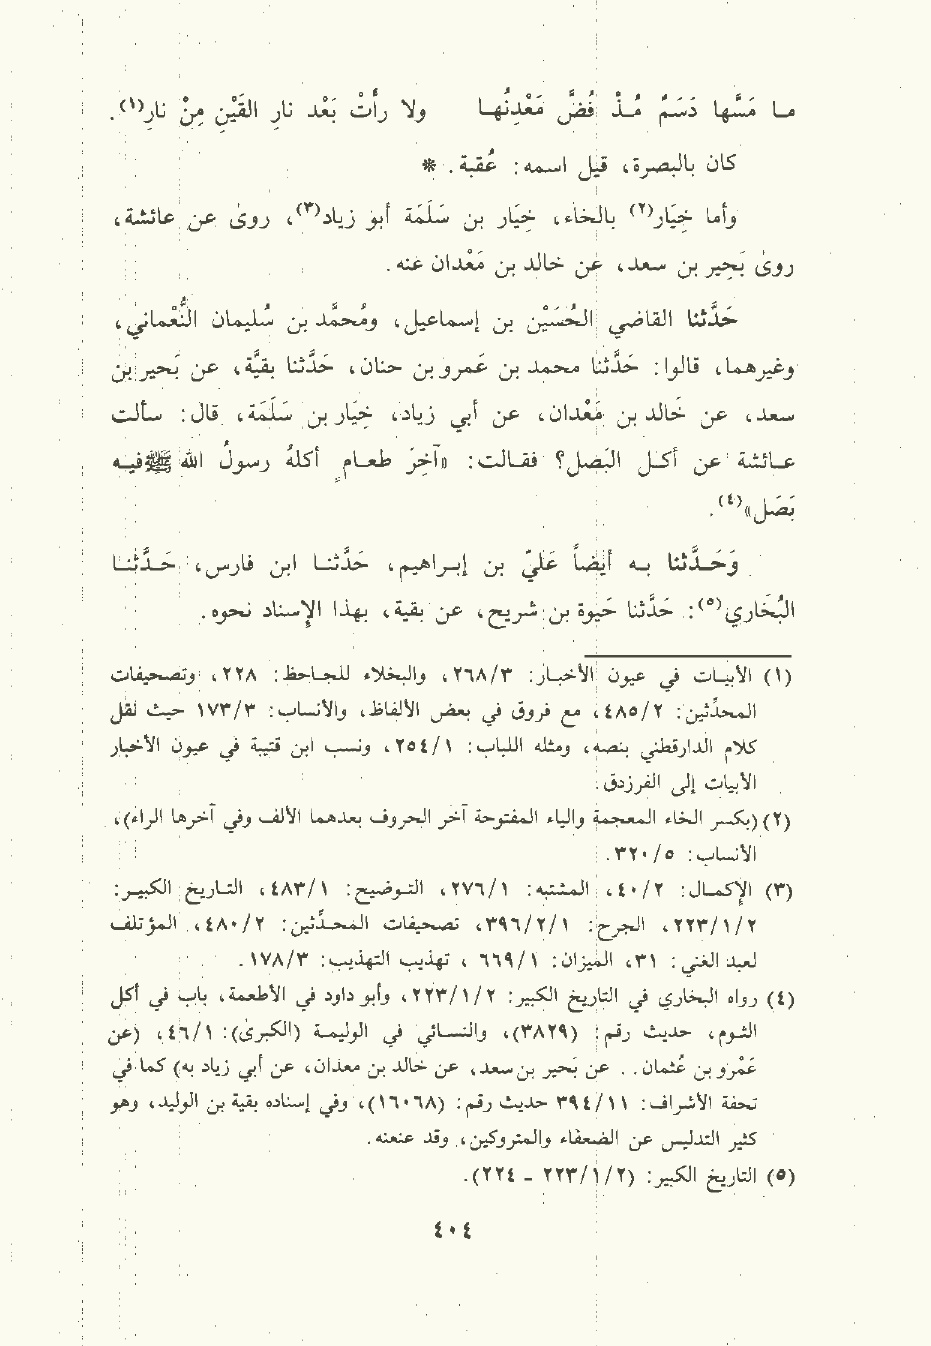 مـا مَسَّها دَسَمٌ مُـذْ فُضَّ مَعْدِنُهـا ولا رأَتْ بَعْد نار القَيْنِ مِنْ نارِ(١).
كان بالبصرة، قيل اسمه: عُقبة. *
وأما خِيَار(٢) بالخاء، خِيَار بن سَلَمَة أبو زياد(٣)، روىٰ عن عائشة،
روىٰ بَحِير بن سعد، عن خالد بن مَعْدان عنه.
حَدَّثنا القاضي الحُسَيْن بن إسماعيل، ومُحمَّد بن سُليمان النُّعْماني،
وغيرهما، قالوا: حَدَّثنا محمد بن عَمرو بن حنان، حَدَّثنا بقيَّة، عن بَحير بن
سعد، عن خَالد بن مَعْدان، عن أبي زياد، خِيَار بن سَلَمَة، قال: سألت
عـائشة عن أكـل البَصل؟ فقـالت: «آخِرَ طعـام أكلهُ رسولُ الله ﷺ فيـه
بَصَل»(٤).
وَحَـدَّثنا بـه أيضاً عَليّ بن إبـراهيم، حَدَّثنـا ابن فارس، حَـدَّثنـا
البُخَاري(٥): حَدَّثنا حَيوة بن شريح، عن بقية، بهذا الإسناد نحوه.
(١) الأبيـات في عيون الأخبـار: ٢٦٨/٣، والبخلاء للجـاحظ: ٢٢٨، وتصحيفات
المحدِّثين: ٤٨٥/٢، مع فروق في بعض الألفاظ، والأنساب: ١٧٣/٣ حيث نقل
كلام الدارقطني بنصه، ومثله اللباب: ٢٥٤/١، ونسب ابن قتيبة في عيون الأخبار
الأبيات إلى الفرزدق.
(٢) (بكسر الخاء المعجمة والياء المفتوحة آخر الحروف بعدهما الألف وفي آخرها الراء)،
الأنساب: ٣٢٠/٥.
(٣) الإكمـال: ٤٠/٢، المشتبه: ٢٧٦/١، التـوضيح: ٤٨٣/١، التـاريخ الكبيـر:
٢٢٣/١/٢، الجرح: ٣٩٦/٢/١، تصحيفات المحـدِّثين: ٤٨٠/٢، المؤتلف
لعبد الغني: ٣١، الميزان: ٦٦٩/١ ، تهذيب التهذيب: ١٧٨/٣.
(٤) رواه البخاري في التاريخ الكبير: ٢٢٣/١/٢، وأبو داود في الأطعمة، باب في أكل
الثـوم، حديث رقم: (٣٨٢٩)، والنسـائي في الوليمـة (الكبرىٰ): ٤٦/١، (عن
عَمْرو بن عُثمان.. عن بَحير بن سعد، عن خالد بن معدان، عن أبي زياد به) كما في
تحفة الأشراف: ٣٩٤/١١ حديث رقم: (١٦٠٦٨)، وفي إسناده بقية بن الوليد، وهو
كثير التدليس عن الضعفاء والمتروكين، وقد عنعنه.
(٥) التاريخ الكبير: (٢٢٣/١/٢ - ٢٢٤).
٤٠٤